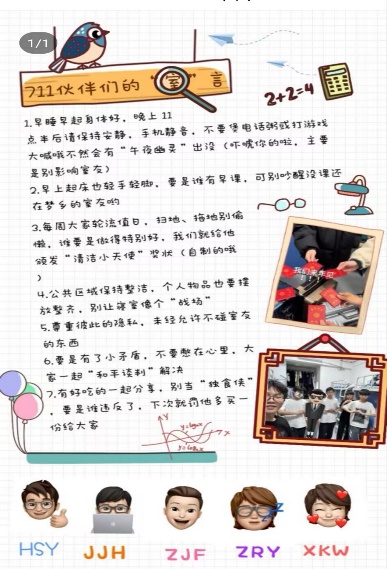 1/1
711伙伴们的"室"言
2+2=4
1.早睡早起身体好，晚上11
点半后请保持安静，手机静音，不要煲电话粥或打游戏
大喊哦不然会有"午夜幽灵"出没（吓唬你的啦，主要
是别影响室友）
2.早上起床也轻手轻脚，要是谁有早课，可别吵醒没课还
在梦乡的室友哟
3.每周大家轮流值日，扫地、拖地别偷
懒，谁要是做得特别好，我们就给他
颁发"清洁小天使"奖状（自制的哦
）
4.公共区域保持整洁，个人物品也要摆
放整齐，别让寝室像个"战场"
5.尊重彼此的隐私，未经允许不碰室友
的东西
6.要是有了小矛盾，不要憋在心里，大
家一起"和平谈判"解决
7.有好吃的一起分享，别当"独食侠"
，要是谁违反了，下次就罚他多买一
份给大家
Y
X
HSY JJH ZJF ZRY XKW